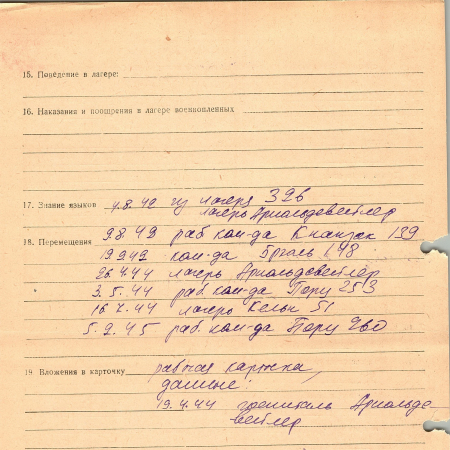 15. Поведение в лагере:
16. Наказания и поощрения в лагере военнопленных
17. Знание языков 4.8.42 из лагеря 326
лагерь Арнольдсвейлер
9.8.42 раб ком-да 139
18. Перемещения
19.9.42 ком-да 148
26.4.44 лагерь Арнольдсвейлер
3.5.44 раб. ком-да Порц 253
лагерь Кельн 51
5.2.45 раб. ком-да Порц 960
19 Вложения в карточку рабочая карточка,
данные:
19.4.44 госпиталь Арнольдс-
вейлер